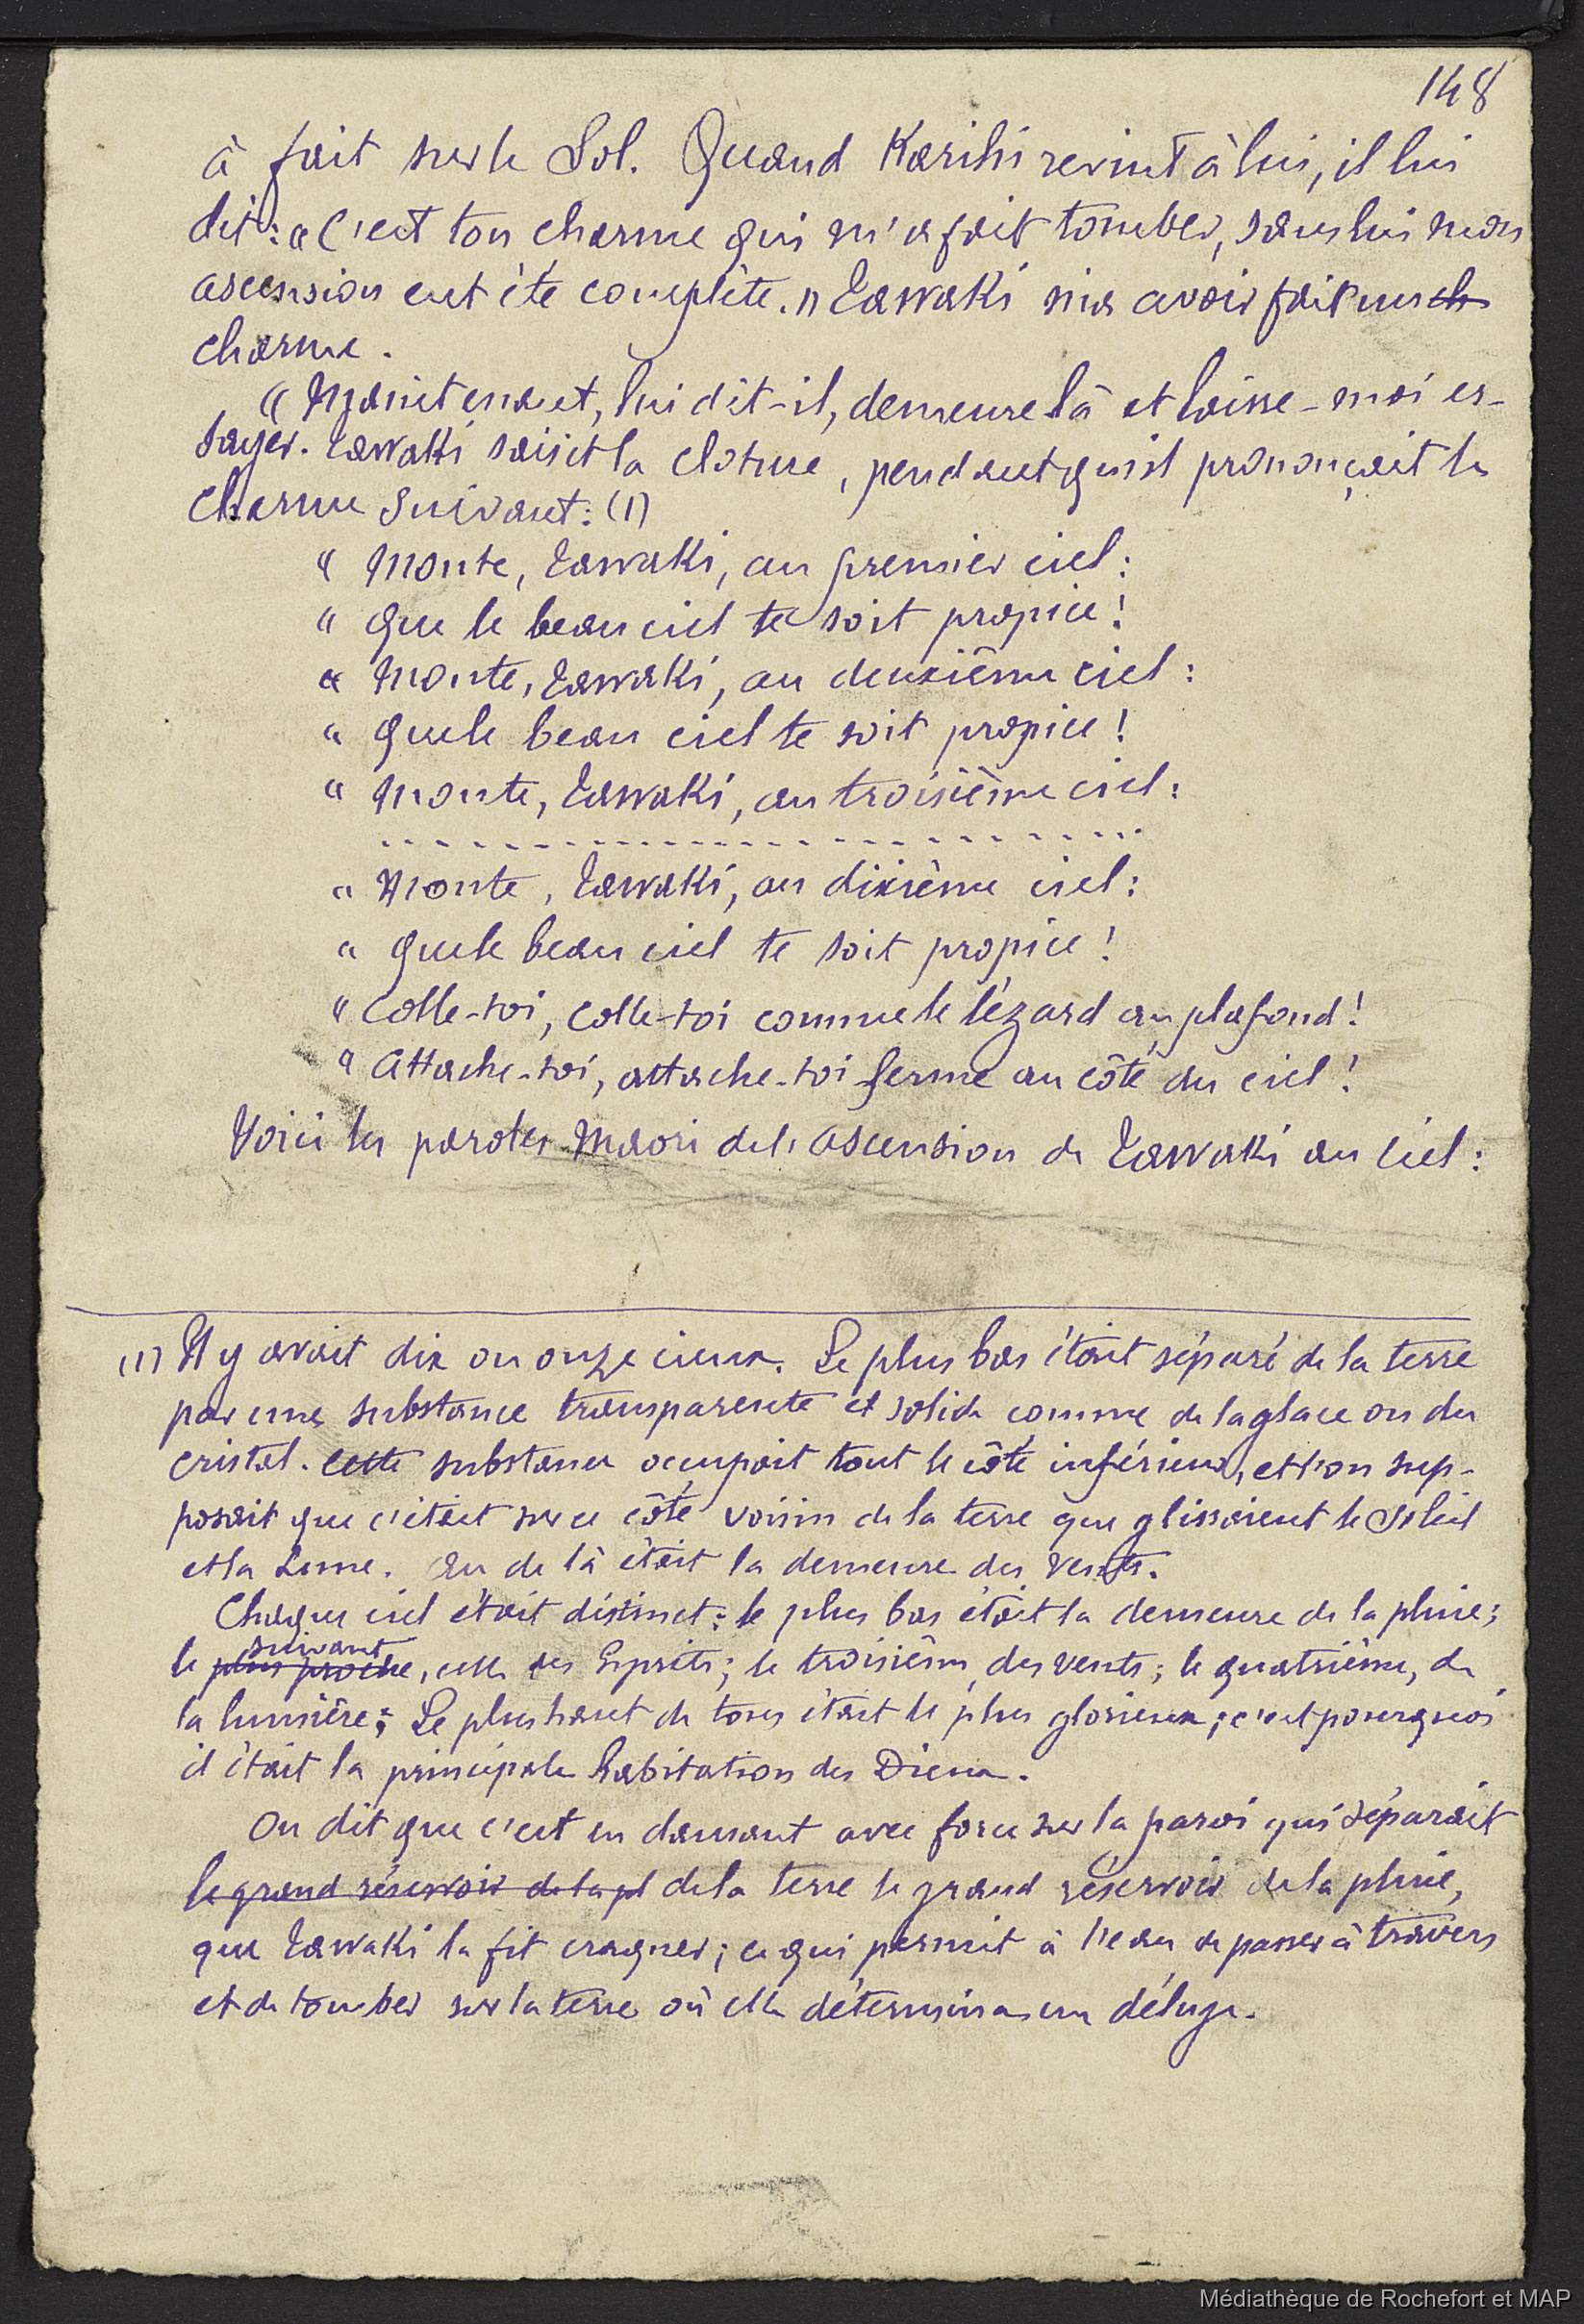 148
à fait sur le Sol. Quand Karihi revint à lui, il lui
dit : « C'est ton charme qui m'a fait tomber, sans lui mon
ascension eut été complète. » Tawaki nia avoir fait un ch
charme.
« Maintenant, lui dit-il, demeure là et laisse-moi es-
sayer. Tawaki saisit la cloture, pendant qu'il prononçait le
charme suivant : (1)
« Monte, Tawaki, au premier ciel :
« que le beau ciel te soit propice !
« Monte, Tawaki, au deuxième ciel :
« que le beau ciel te soit propice !
« Monte, Tawaki, au troisième ciel :
- - - - - - - - - - - - - - - - - - - - - - - - -
« Monte, Tawaki, au dixième ciel :
« que le beau ciel te soit propice !
« Colle-toi, colle-toi comme le lézard au plafond !
« Attache-toi, attache-toi ferme au côté du ciel !
Voici les paroles Maori de l'ascension de Tawaki au Ciel :
(1) Il y avait dix ou onze cieux. Le plus bas était séparé de la terre
par une substance transparente et solide comme de la glace ou du
cristal. Cette substance occupait tout le côté inférieur, et l'on sup-
posait que c'était sur ce côté voisin de la terre que glissaient le Soleil
et la Lune. Au de là était la demeure des Vents.
Chaque ciel était distinct : le plus bas était la demeure de la pluie ;
suivant
le plus proche, celle des Esprits ; le troisième, des vents ; le quatrième, de
la lumière ; Le plus haut de tous était le plus glorieux ; c'est pourquoi
il était la principale habitation des Dieux.
On dit que c'est en dansant avec force sur la paroi qui séparait
le grand réservoir de la pl de la terre le grand réservoir de la pluie,
que Tawaki la fit craquer ; ce qui permit à l'eau de passer à travers
et de tomber sur la terre où elle détermina un déluge.
Médiathèque de Rochefort et MAP